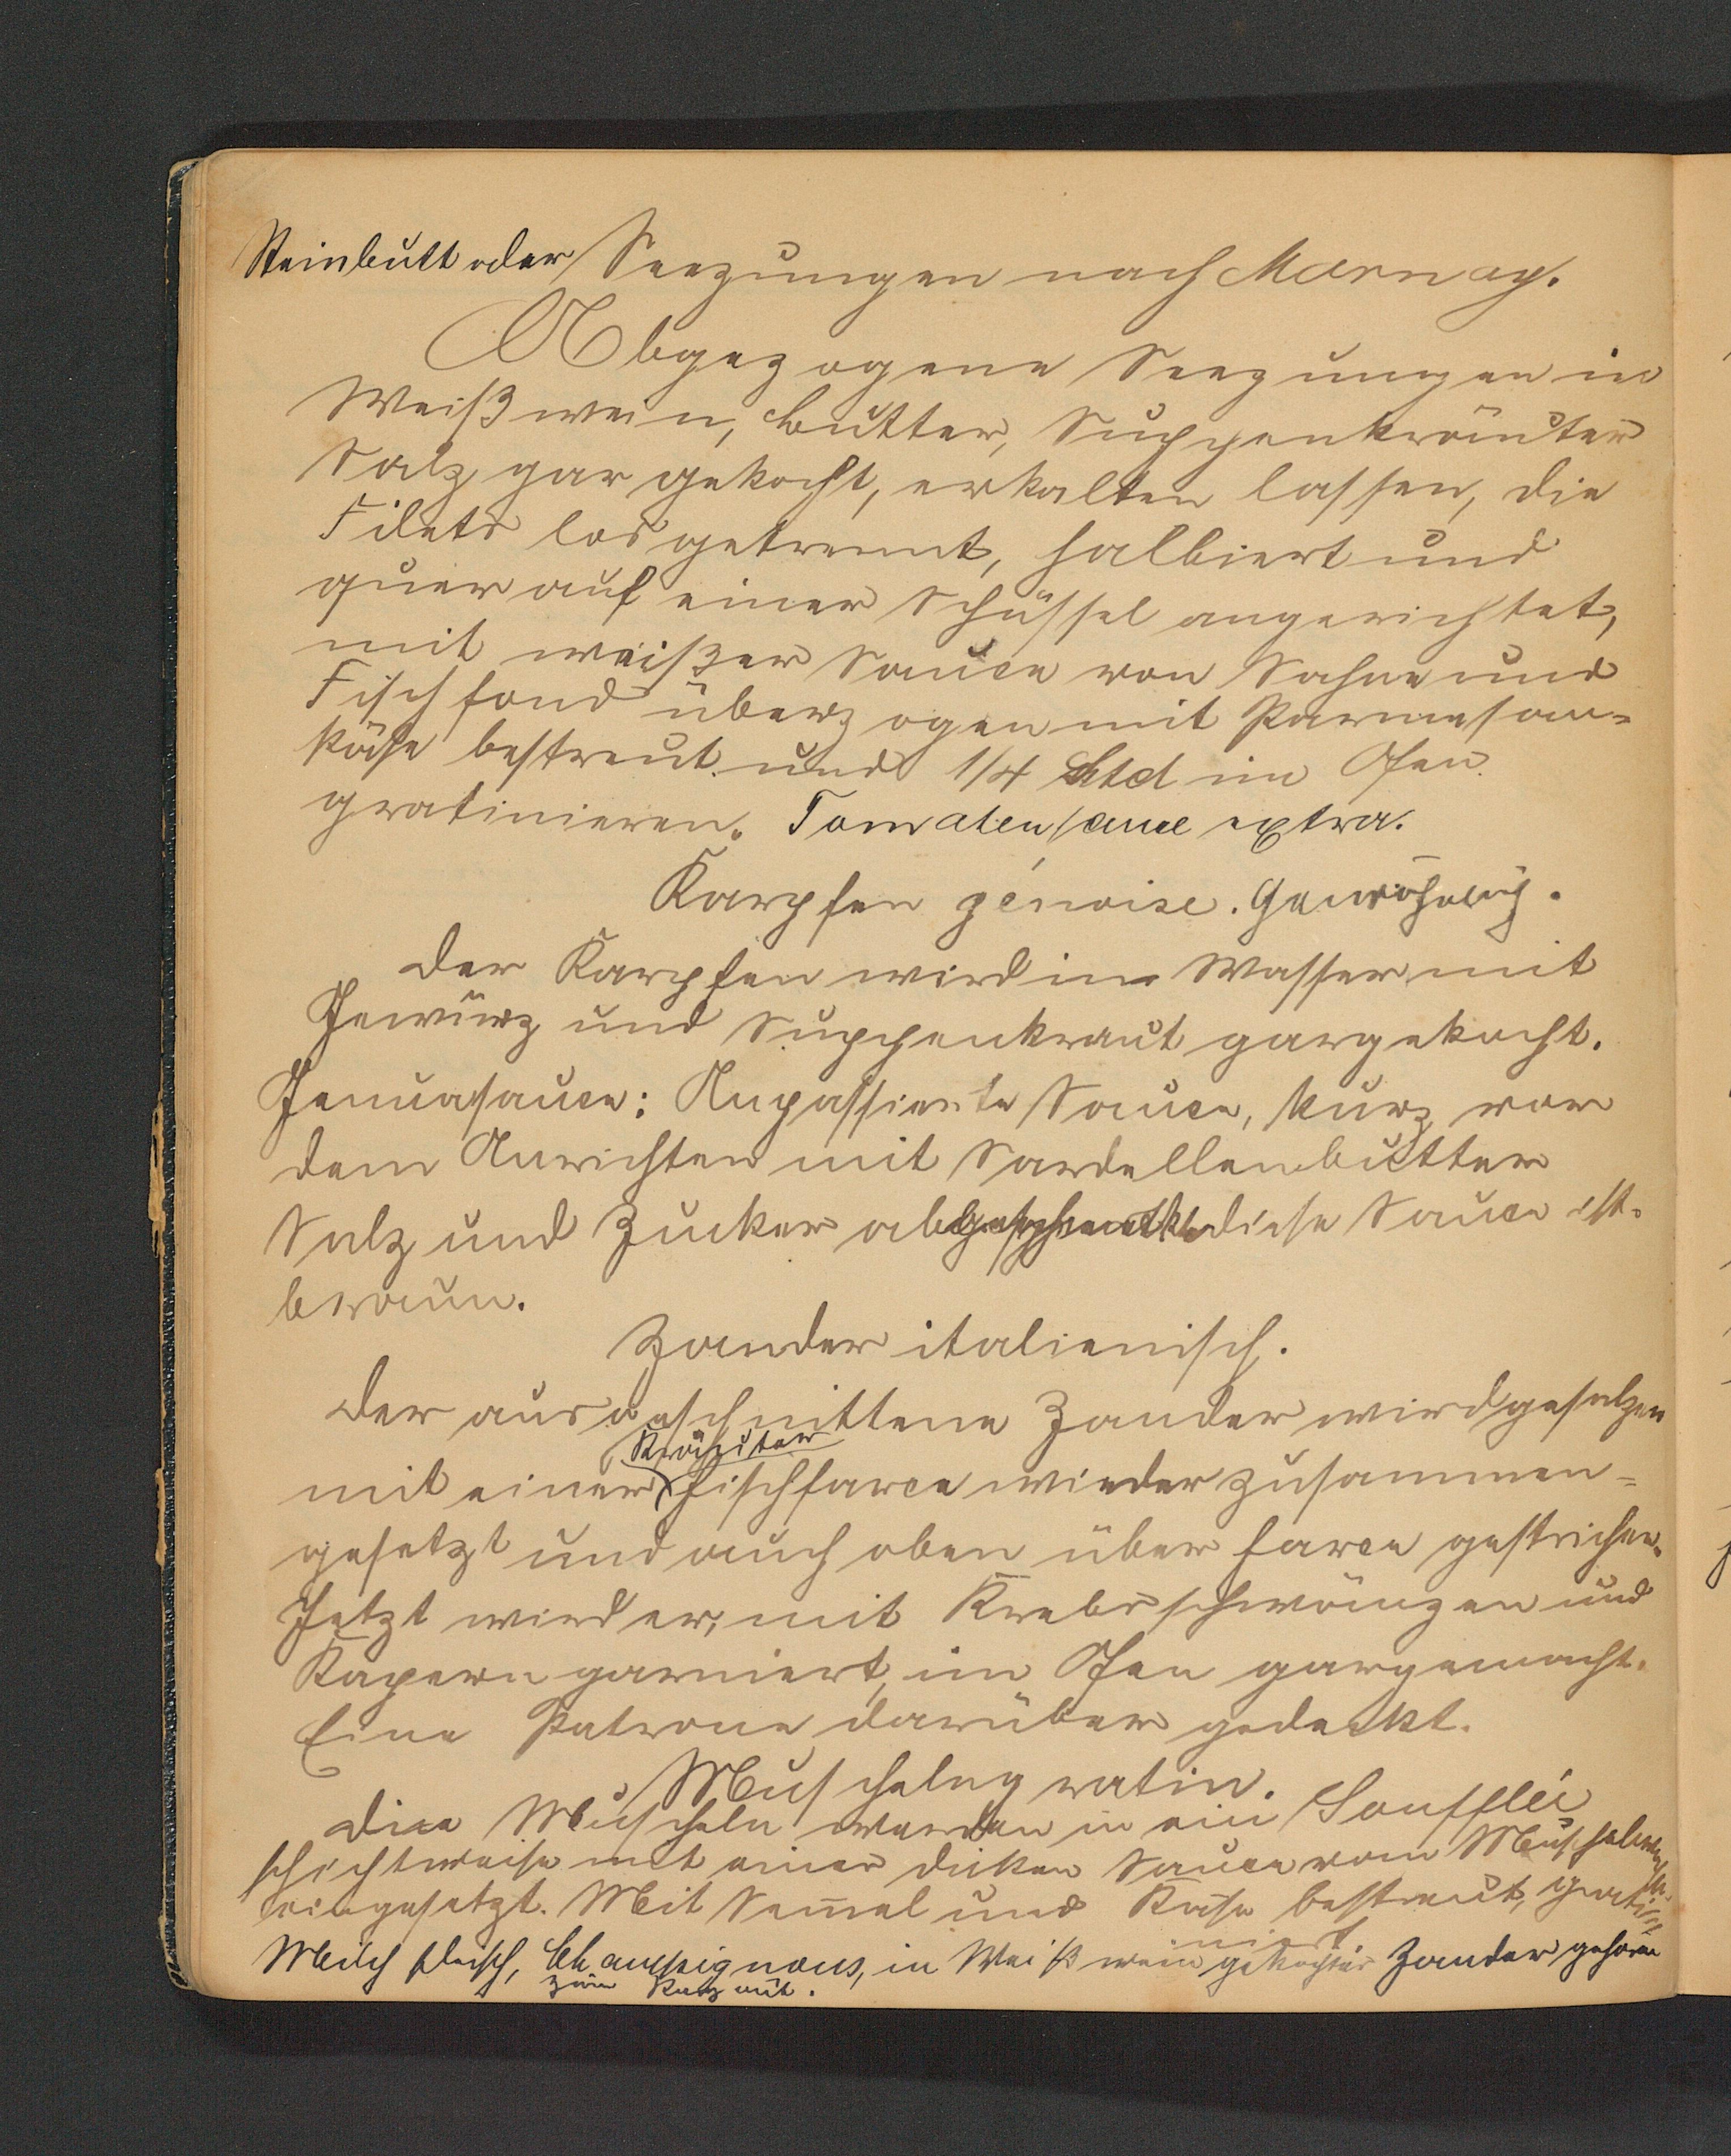 Steinbutt oder Seezungen nach Marnay.
Abgezogene Seezungen in
Weißwein, Butter, Suppenkräuter
Salz gar gekocht, erkalten lassen, die
Filets losgetrennt, halbiert und
quer auf einer Schüssel angerichtet,
mit weißer Sauce von Sahne und
Fischfond überzogen mit Parmesan-
käse bestreut und 1/4 Std im Ofen
gratinieren. Tomatensauce extra.
Karpfen génoise. Gewöhnlich.
Der Karpfen wird in Wasser mit
Gewürz und Suppenkraut gargekocht.
Genuasauce: Anpassierte Sauce, kurz vor
dem Anrichten mit Sardellenbutter
Salz und Zucker abgeschmeckt diese Sauce ist
braun.
Zander italienisch.
Der ausgeschnittene Zander wird gesalzen
Kräuter
mit einer Fischfarce wieder zusammen-
gesetzt und auch oben über farce gestrichen.
Jetzt wird er, mit Krebsschwänzen und
Kapern garniert, im Ofen gargemacht.
Eine Patrone darüber gedeckt.
Muscheln gratin.
Die Muscheln werden in ein Soufflée
schichtweise mit einer dicken Sauce vom
eingesetzt. Mit Semmel und Käse bestreut, grati-
niert.
Milch fleisch, Champignons, in Weißwein gekochter Zander gehören
zum